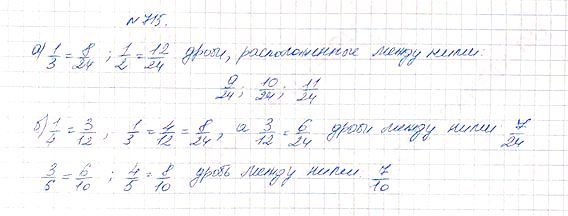 № 715.
а) 1/3 = 8/24 ; 1/2 = 12/24 дроби, расположенные между ними:
9/24; 10/24; 11/24
б) 1/4 = 3/12 ; 1/3 = 4/12 = 8/24 , а 3/12 = 6/24 дроби между ними 7/24
3/5 = 6/10 ; 4/5 = 8/10 дробь между ними 7/10